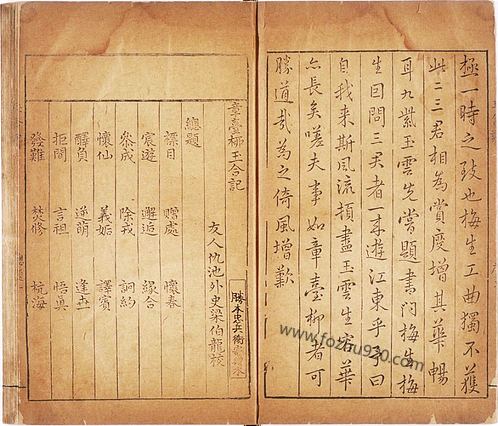 極一時之致也梅生工曲獨不獲
此二三君相為賞度增其華暢
耳九紫玉雲先嘗題書門梅生梅
生因問三君者一再遊江東乎予曰
自我来斯風流頓盡玉雲生容華
亦長矣嗟夫事如章臺柳者可
勝道哉為之倚風增歎
章臺柳玉合記
友人仇池外史梁伯龍校
總題
標目 贈處 懷春
宸遊 邂逅 緣合
參成 除戎 訶約
懷仙 義姤 譯賓
醳負 逆萌 逢
拒間 言祖 悟真
發難 焚修 杭海
www.fozhu920.com